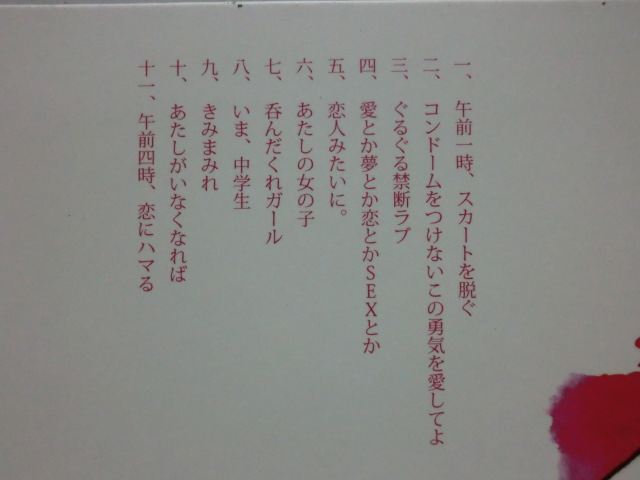 一、午前一時、スカートを脱ぐ
二、コンドームをつけないこの勇気を愛してよ
三、ぐるぐる禁断ラブ
四、愛とか夢とか恋とかSEXとか
五、恋人みたいに。
六、あたしの女の子
七、呑んだくれガール
八、いま、中学生
九、きみまみれ
十、あたしがいなくなれば
十一、午前四時、恋にハマる